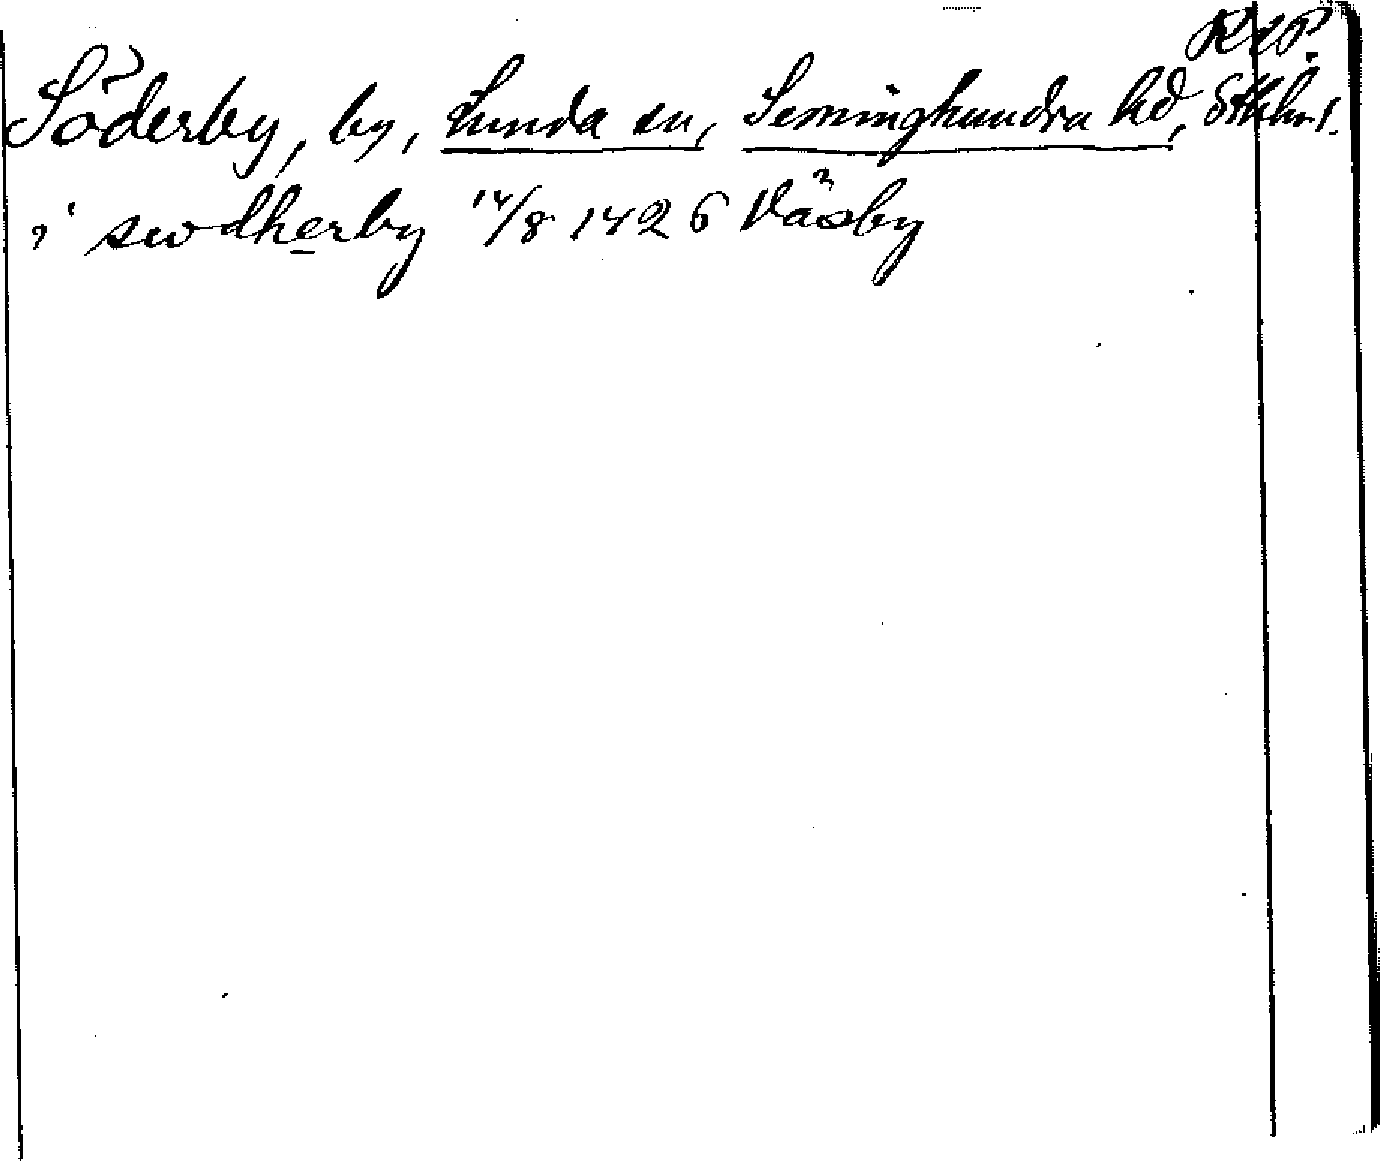 RAP.
Söderby, by, Lunda sn, Seminghundra hd, Sthlm l.
i swdherby 14/8 1426 Väsby